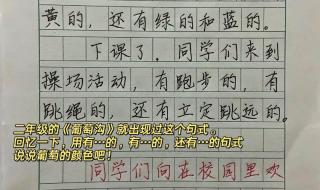 黄的，还有绿的和蓝的。
下课了，同学们来到
操场活动，有跑步的，有
跳绳的，还有立定跳远的。
二年级的《葡萄沟》就出现过这个句式。
回忆一下，用有…的，有…的，还有…的句式
说说葡萄的颜色吧！
同学们向在校园里欢